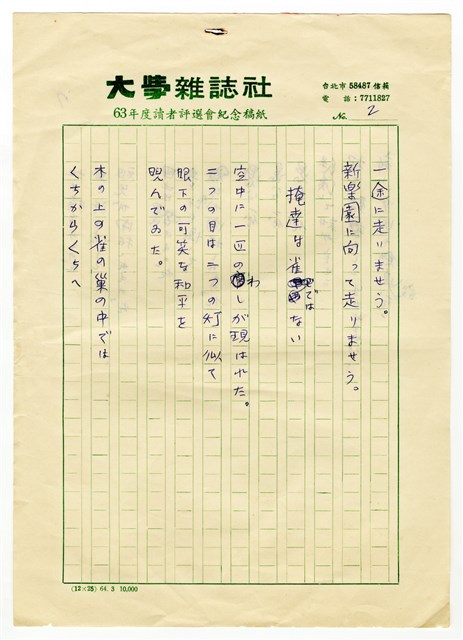 大學雜誌社
63年度讀者評選會紀念稿紙
台北市 58487 信箱
電 話：7711827
No. 2
一途に走りませう。
新楽園に向って走りませう。
掩達な雀ではない
空中に一匹のわしが現はれた。
二つの目は二つの灯に似て
眼下の可笑な和平を
睨んでゐた。
木の上の雀の巣の中では
くちからくちへ
(12×25) 64. 3 10,000